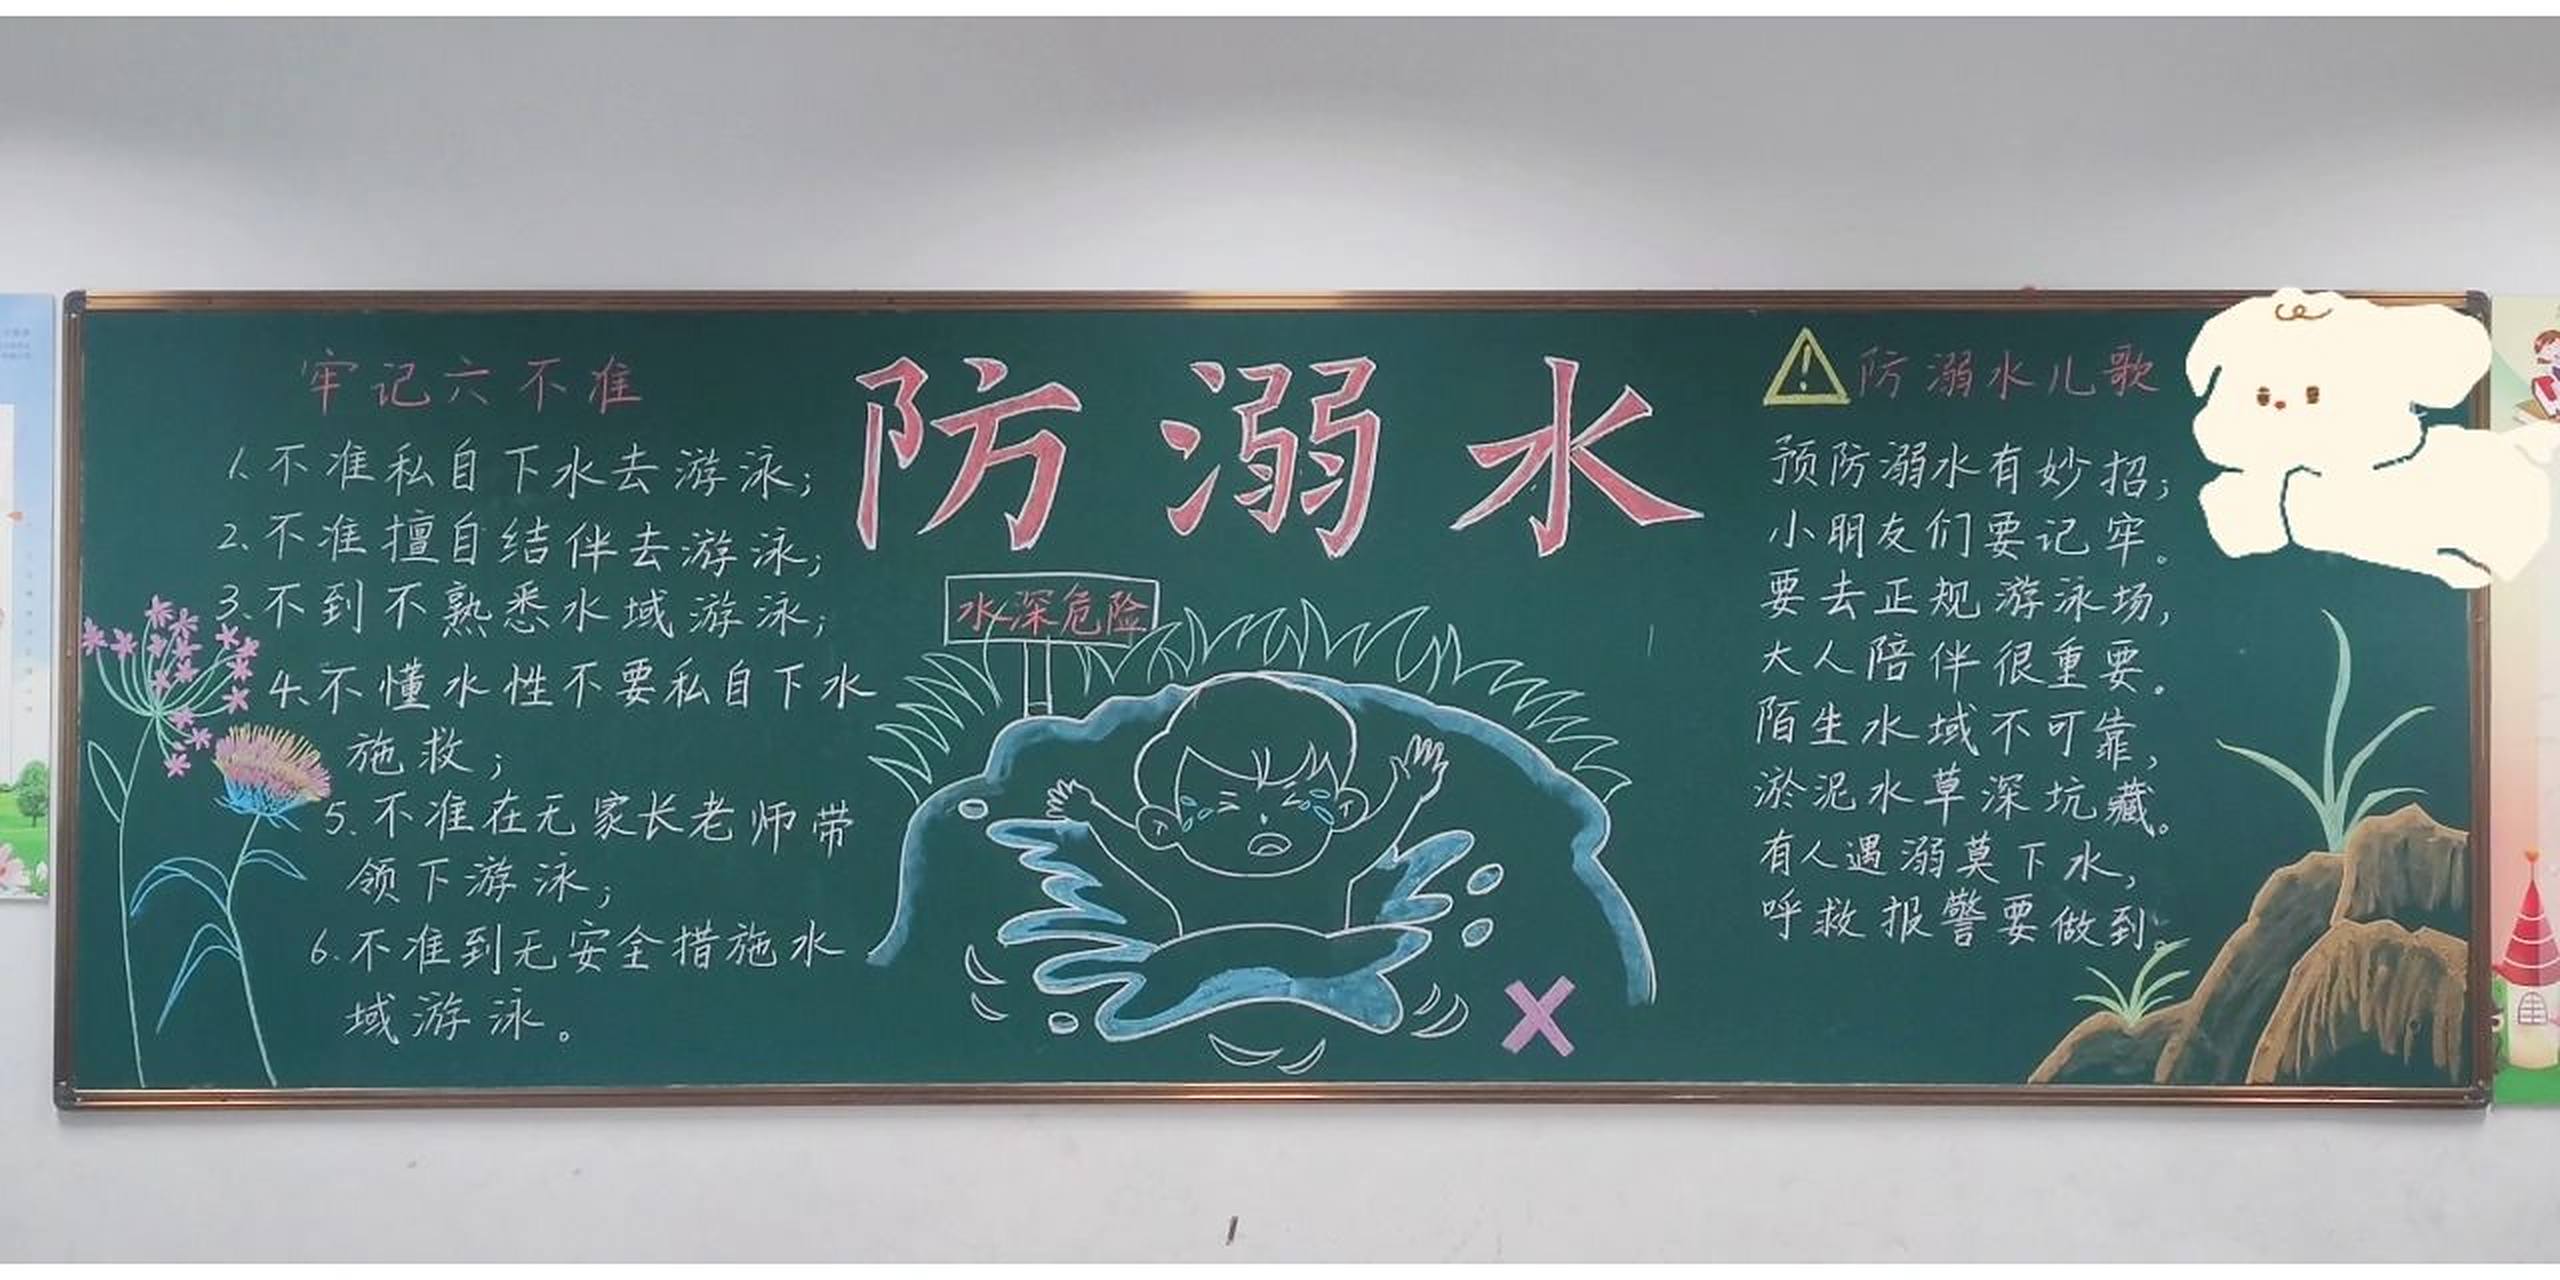 牢记六不准
1.不准私自下水去游泳；
2.不准擅自结伴去游泳；
3.不到不熟悉水域游泳；
4.不懂水性不要私自下水
施救；
5.不准在无家长老师带
领下游泳；
6.不准到无安全措施水
域游泳。
防溺水
水深危险
防溺水儿歌
预防溺水有妙招；
小朋友们要记牢。
要去正规游泳场，
大人陪伴很重要。
陌生水域不可靠，
淤泥水草深坑藏。
有人遇溺莫下水，
呼救报警要做到。